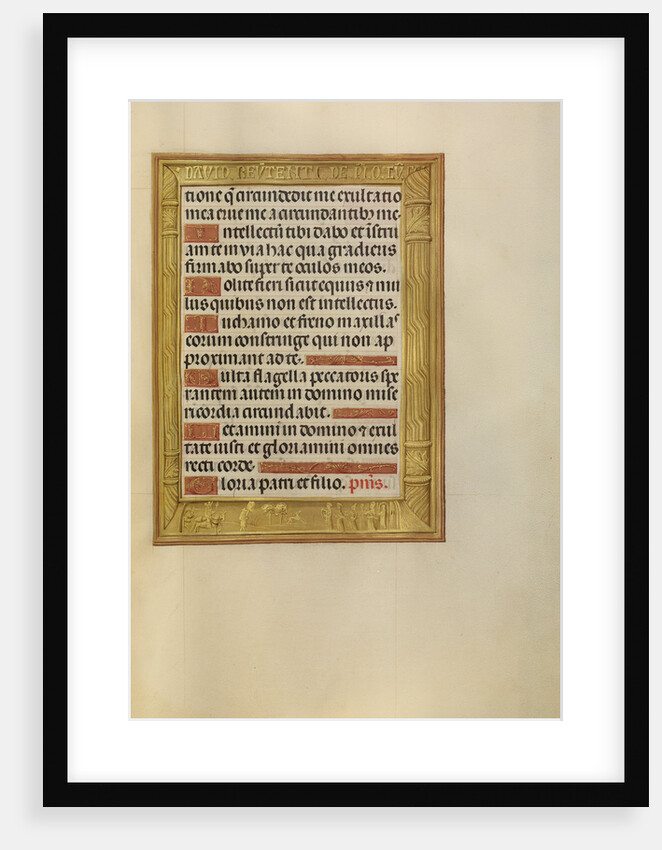 DAVID
tione q̃ circundedit me exultatio
mea erue me a circundantibꝫ me·
Intellectũ tibi dabo et ĩstru
am te in via hac qua gradieris
firmabo super te oculos meos.
Nolite fieri sicut equus ⁊ mu
lus quibus non est intellectus.
In chamo et freno maxillaˢ
eorum constringe qui non ap
proximant ad te·
Multa flagella peccatoris spe
rantem autem in domino mise
ricordia circundabit.
Letamini in domino ⁊ exul
tate iusti et gloriamini omnes
recti corde·
Gloria patri et filio. pſũs.